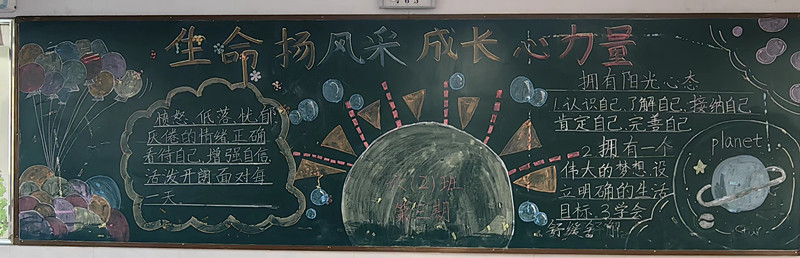 生命扬风采 成长心力量
愤怒、低落、忧郁
厌倦的情绪正确
看待自己,增强自信
活泼开朗面对每
一天
(2)班
期
拥有阳光心态
1.认识自己、了解自己、接纳自己
肯定自己、完善自己
2.拥有一个
伟大的梦想、设
立明确的生活
目标、3.学会
舒缓
planet
star